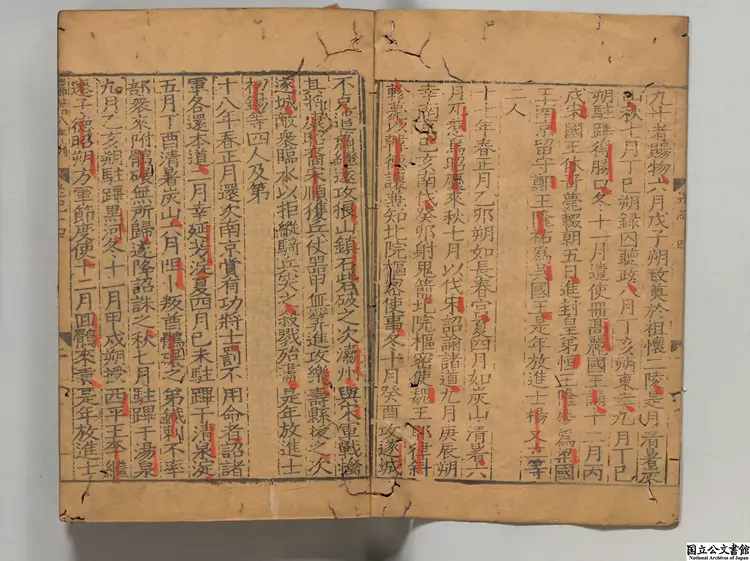 九十者賜物六月戊子朔致奠於祖懷二陵是月清暑炭
山秋七月丁巳朔錄囚聽政八月丁亥朔東幸九月丁巳
朔駐蹕得勝口冬十一月遣使冊高麗國王誦十二月丙
戌宋國王休哥薨輟朝五日進封皇弟恒王隆慶為梁國
王南京留守鄭王隆祐為吳國王是年放進士楊又玄等
人
十七年春正月乙卯朔如長春宮夏四月如炭山清暑六
月兀惹烏昭慶來秋七月以伐宋詔諭諸道九月庚辰朔
幸南京己亥南伐癸卯射鬼箭北院樞密使魏王耶律斜
軫薨以韓德讓兼知北院樞密使事冬十月癸酉攻遂城
不克遣蕭繼遠攻狼山鎮石砦破之次瀛州與宋軍戰擒
其將康昭裔宋順獲兵仗器甲無筭進攻樂壽縣拔之次
遂城敵衆臨水以拒縱騎兵突之殺戮殆盡是年放進士
初錫等四人及第
十八年春正月還次南京賞有功將士罰不用命者詔諸
軍各還本道二月幸延芳淀夏四月己未駐蹕于清泉淀
五月丁酉清暑炭山六月阻卜叛酋鶻碾之弟鐵剌不率
部衆來附鶻碾無所歸遂降詔誅之秋七月駐蹕于湯泉
九月乙亥朔駐蹕黑河冬十一月甲戌朔授西平王李繼
遷子德昭朔方軍節度使十二月回鶻來貢是年放進士
国立公文書館
National Archives of Japan